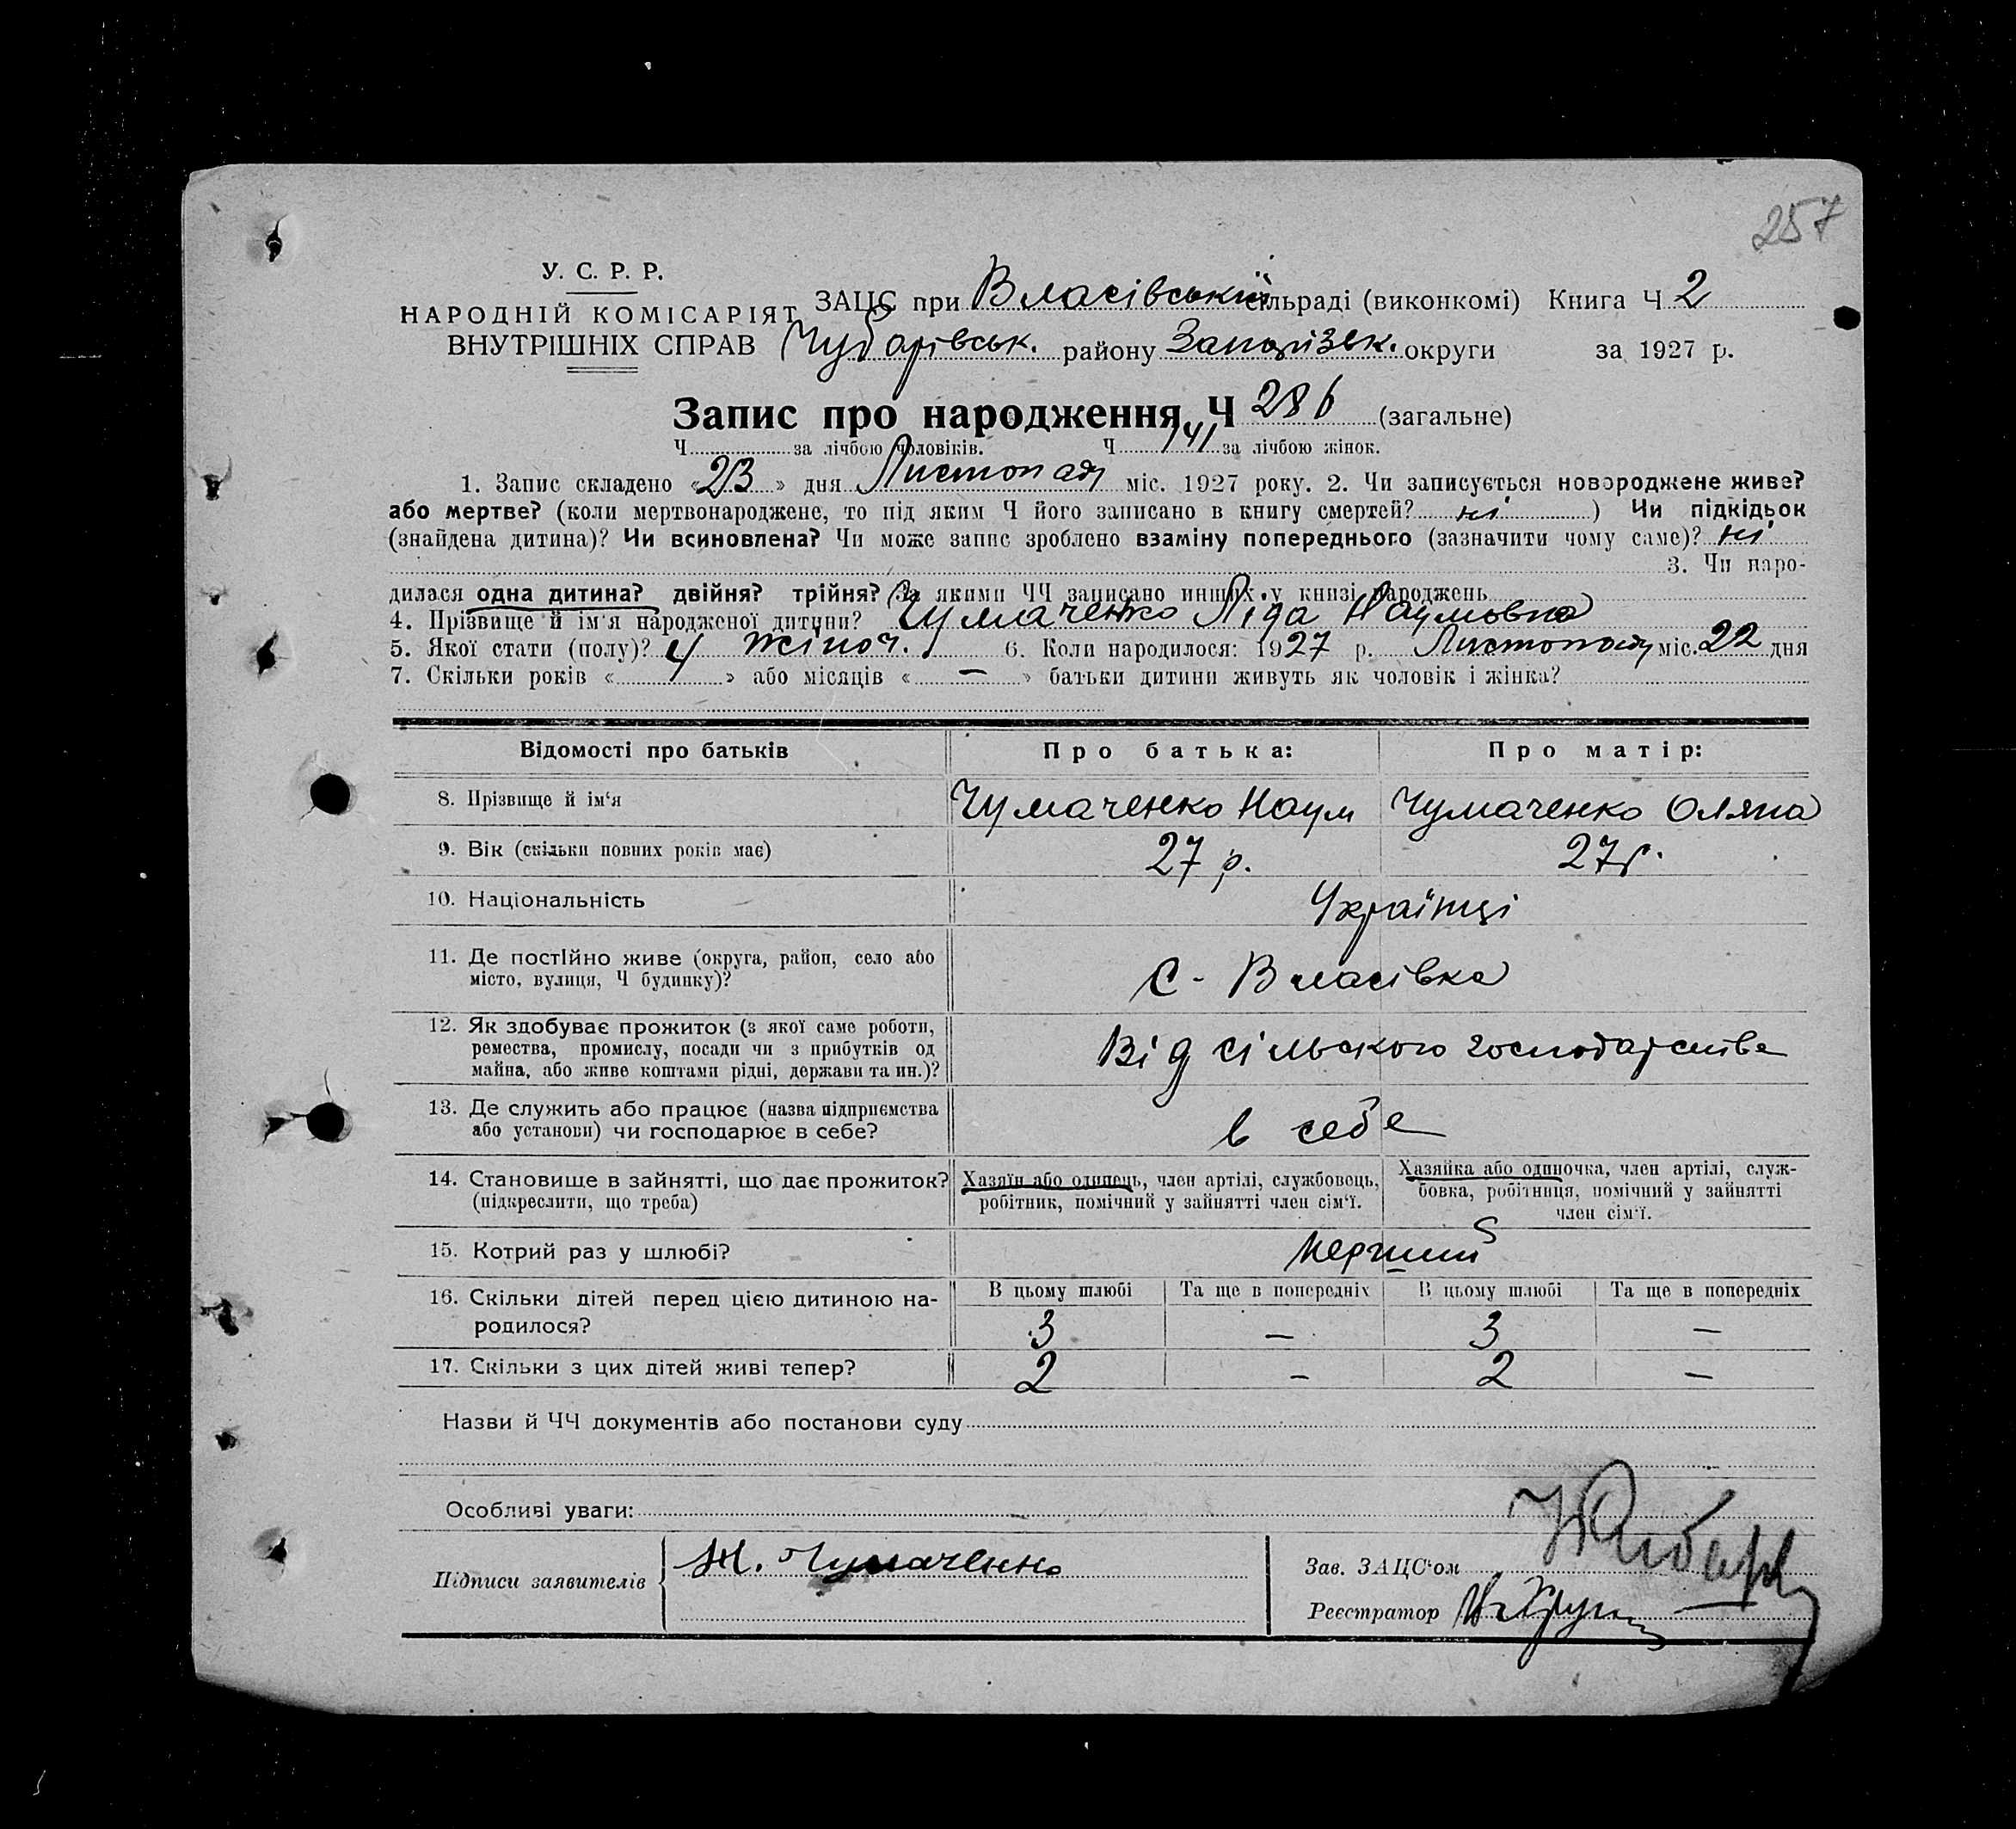 257
У. С. Р. Р.
НАРОДНІЙ КОМІСАРІЯТ
ВНУТРІШНІХ СПРАВ
ЗАЦС при Власівській сільраді (виконкомі) Книга Ч 2
Чубарівськ. району Запорізьк. округи за 1927 р.
Запис про народження Ч 286 (загальне)
Ч за лічбою чоловіків. Ч 141 за лічбою жінок.
1. Запис складено «23» дня Листопаду міс. 1927 року. 2. Чи записується новороджене живе?
або мертве? (коли мертвонароджене, то під яким Ч його записано в книгу смертей? ні ) Чи підкідьок
(знайдена дитина)? Чи всиновлена? Чи може запис зроблено взаміну попереднього (зазначити чому саме)? ні
3. Чи наро-
дилася одна дитина? двійня? трійня? За якими ЧЧ записано инших у книзі народжень
4. Прізвище й ім'я народженої дитини? Чумаченко Ліда Наумовна
5. Якої стати (полу)? жіноч. 6. Коли народилося: 1927 р. Листопаду міс. 22 дня
7. Скільки років « 4 » або місяців « — » батьки дитини живуть як чоловік і жінка?
Відомості про батьків Про батька: Про матір:
8. Прізвище й ім'я Чумаченко Наум Чумаченко Оляна
9. Вік (скільки повних років має) 27 р. 27 р.
10. Національність Українці
11. Де постійно живе (округа, район, село або
місто, вулиця, Ч будинку)? С - Власівка
12. Як здобуває прожиток (з якої саме роботи,
ремества, промислу, посади чи з прибутків од
майна, або живе коштами рідні, держави та ин.)? Від сільського господарства
13. Де служить або працює (назва підприємства
або установи) чи господарює в себе? в себе
14. Становище в зайнятті, що дає прожиток?
(підкреслити, що треба)
Хазяїн або одинець, член артілі, службовець,
робітник, помічний у зайнятті член сім'ї.
Хазяйка або одиночка, член артілі, служ-
бовка, робітниця, помічний у зайнятті
член сім'ї.
15. Котрий раз у шлюбі? перший
16. Скільки дітей перед цією дитиною на-
родилося?
В цьому шлюбі Та ще в попередніх В цьому шлюбі Та ще в попередніх
3 — 3 —
17. Скільки з цих дітей живі тепер? 2 - 2 —
Назви й ЧЧ документів або постанови суду
Особливі уваги:
Підписи заявителів Чумаченко
Зав. ЗАЦС'ом
Реєстратор